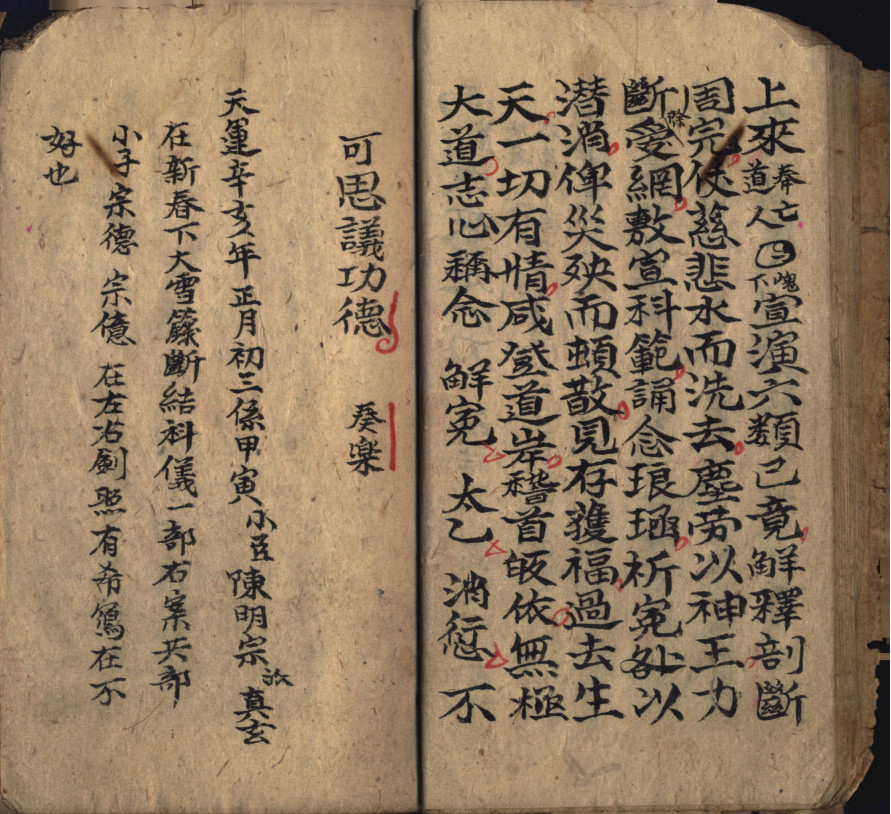 上來奉亡道人魂下宣演六類已竟解釋剖斷
周完伏慈悲水而洗去塵劳以神王力
斷除愛網敷宣科範誦念琅凾祈冤處以
潜消俾災殃而頓散見存獲福過去生
天一切有情咸登道岸稽首皈依無極
大道志心稱念 解冤 太乙 消愆 不
可思議功德 發樂
天運辛亥年正月初三係甲寅小臣陳明宗 真玄
在新春下大雪 斷結科儀一部右案共部
小子宗德 宗億 在左右劍照有希 在不
好也